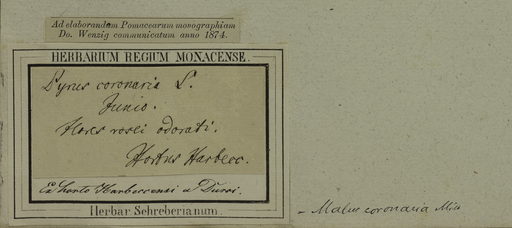 Ad elaborandam Pomacearum monographiam
Do. Wenzig communicatum anno 1874.
HERBARIUM REGIUM MONACENSE.
Pyrus coronaria L.
Junio.
Flores rosei odorati.
Hortus Harbecc.
Ex horto Harbeccensi a Duroi.
Herbar. Schreberianum.
- Malus coronaria Mill